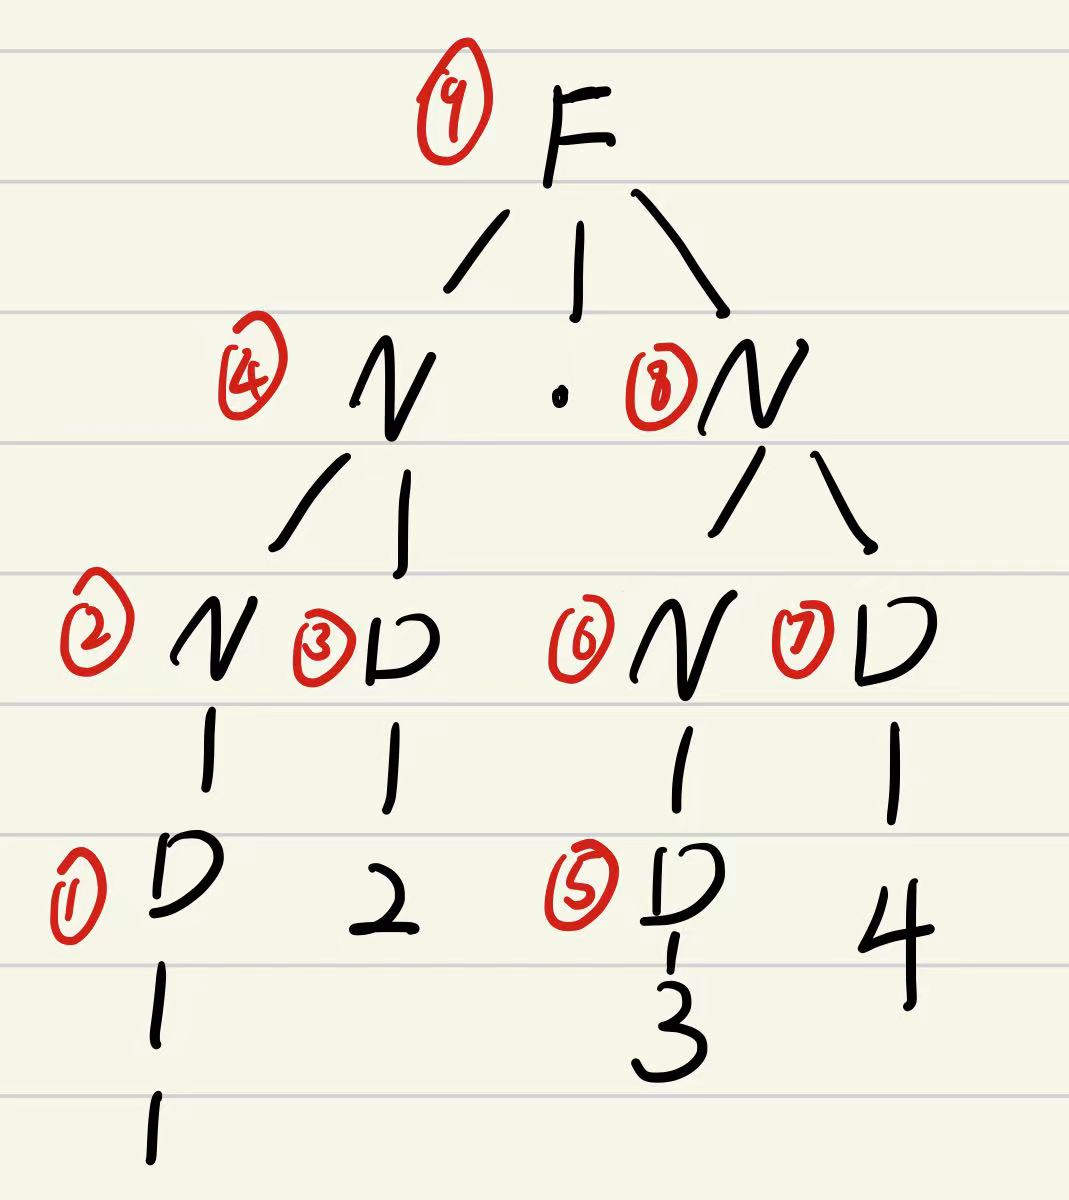 ⑨ F
④ N . ⑧ N
② N ③ D ⑥ N ⑦ D
① D 2 ⑤ D 4
3
1